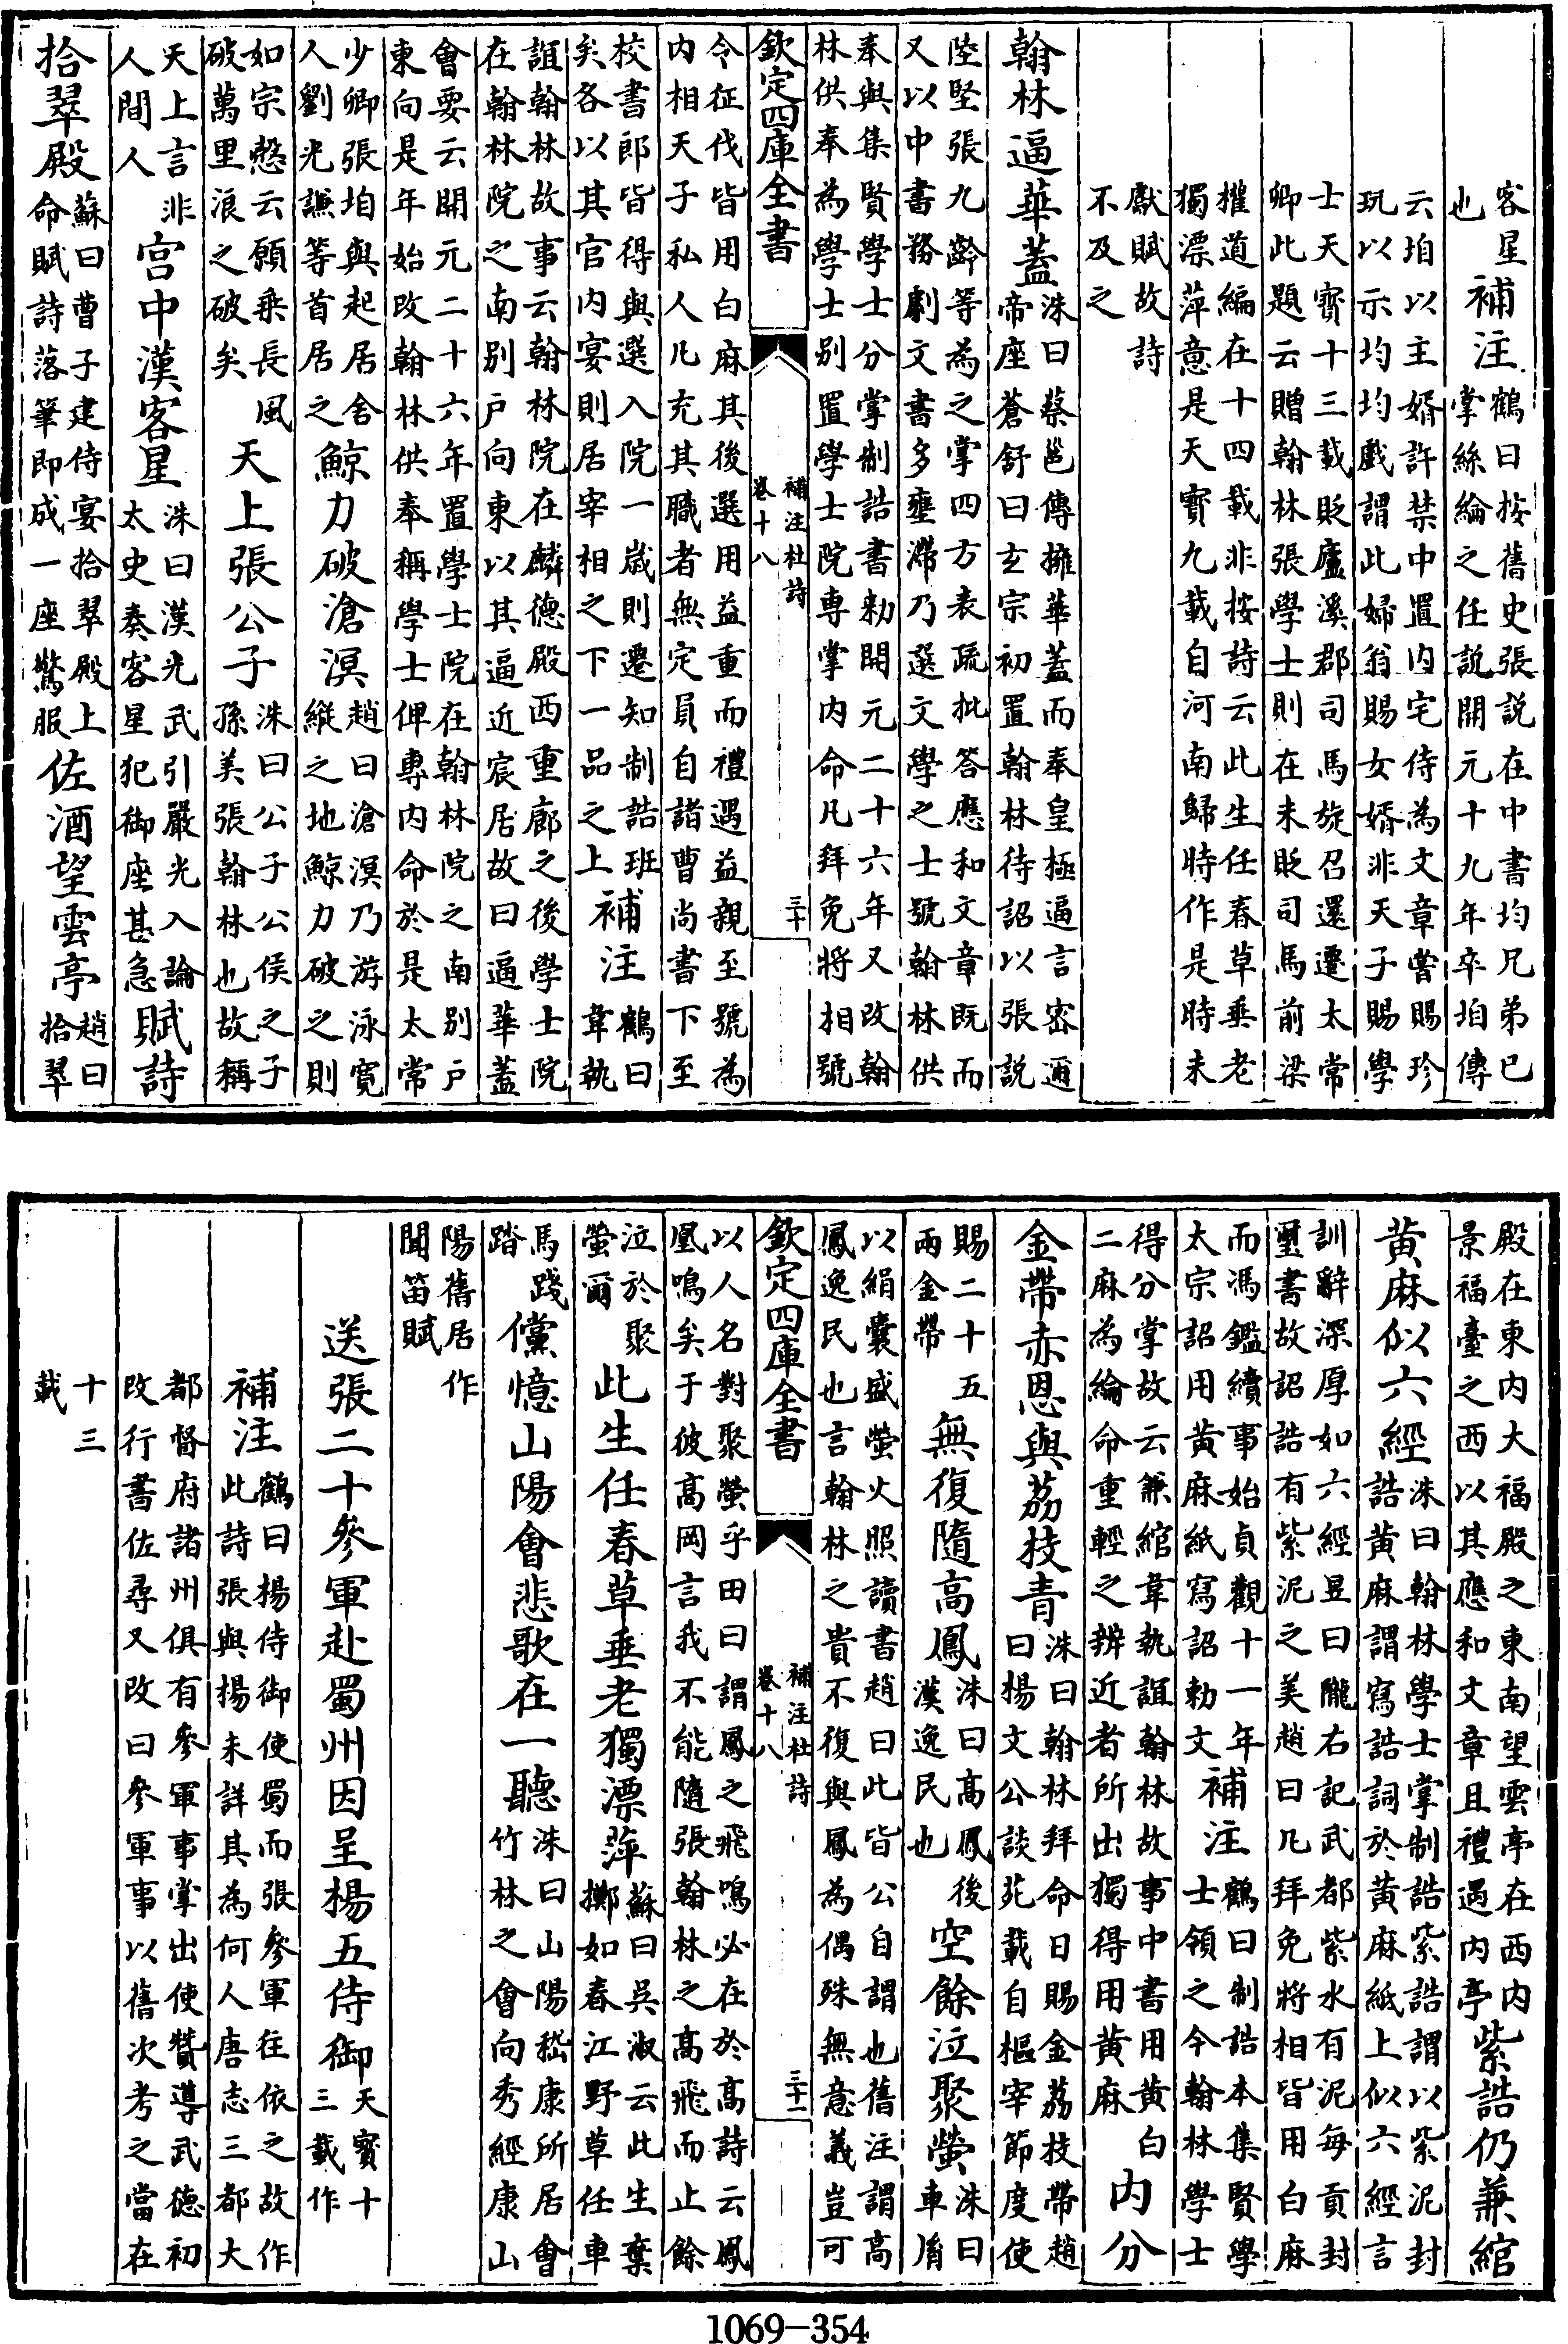 客星也補注鶴曰按舊史張説在中書均兄弟已掌絲綸之任説開元十九年卒垍傳
云垍以主婿許禁中置内宅侍為文章嘗賜珍玩以示均均戲謂此婦翁賜女婿非天子賜學
士天寳十三載貶盧溪郡司馬旋召還遷太常卿此題云贈翰林張學士則在未貶司馬前梁
權道編在十四載非按詩云此生任春草垂老獨漂萍意是天寳九載自河南歸時作是時未
獻賦故詩不及之
翰林逼華蓋洙曰蔡邕傳擁華蓋而奉皇極逼言宻邇帝座蒼舒曰玄宗初置翰林待詔以張説
陸堅張九齡等為之掌四方表疏批答應和文章既而又以中書務劇文書多壅滯乃選文學之士號翰林供
奉與集賢學士分掌制誥書勅開元二十六年又改翰林供奉為學士别置學士院専掌内命凡拜免將相號
欽定四庫全書
補注杜詩
卷十八
三十
令征伐皆用白麻其後選用益重而禮遇益親至號為内相天子私人凡充其職者無定員自諸曹尚書下至
校書郎皆得與選入院一嵗則遷知制誥班矣各以其官内宴則居宰相之下一品之上補注鶴曰韋執
誼翰林故事云翰林院在麟德殿西重廊之後學士院在翰林院之南别户向東以其逼近宸居故曰逼華蓋
會要云開元二十六年置學士院在翰林院之南别户東向是年始改翰林供奉稱學士俾專内命於是太常
少卿張垍與起居舍人劉光謙等首居之鯨力破滄溟趙曰滄溟乃游泳寛縱之地鯨力破之則
如宗慤云願乗長風破萬里浪之破矣天上張公子洙曰公子公侯之子孫美張翰林也故稱
天上言非人間人宫中漢客星洙曰漢光武引嚴光入論太史奏客星犯御座甚急賦詩
拾翠殿蘇曰曹子建侍宴拾翠殿上命賦詩落筆即成一座驚服佐酒望雲亭趙曰拾翠
殿在東内大福殿之東南望雲亭在西内景福臺之西以其應和文章且禮遇内亭紫誥仍兼綰
黄麻似六經洙曰翰林學士掌制誥紫誥謂以紫泥封誥黄麻謂寫誥詞於黄麻紙上似六經言
訓辭深厚如六經昱曰隴右記武都紫水有泥每貢封璽書故詔誥有紫泥之美趙曰凡拜免將相皆用白麻
而馮鑑續事始貞觀十一年太宗詔用黄麻紙寫詔勅文補注鶴曰制誥本集賢學士領之今翰林學士
得分掌故云兼綰韋執誼翰林故事中書用黄白二麻為綸命重輕之辨近者所出獨得用黄麻内分
金帶赤恩與荔枝青洙曰翰林拜命日賜金荔枝帶趙曰楊文公談苑載自樞宰節度使
賜二十五兩金帶無復隨高鳳洙曰高鳳後漢逸民也空餘泣聚螢洙曰車胤
以絹囊盛螢火照讀書趙曰此皆公自謂也舊注謂高鳳逸民也言翰林之貴不復與鳳為偶殊無意義豈可
欽定四庫全書
補注杜詩
卷十八
三十一
以人名對聚螢乎田曰謂鳳之飛鳴必在於高詩云鳳凰鳴矣于彼高岡言我不能隨張翰林之高飛而止餘
泣於聚螢爾此生任春草垂老獨漂萍蘇曰吳淑云此生棄擲如春江野草任車
馬踐踏儻憶山陽會悲歌在一聽洙曰山陽嵇康所居會竹林之會向秀經康山
陽舊居作聞笛賦
送張二十參軍赴蜀州因呈楊五侍御天寳十三載作
補注鶴曰楊侍御使蜀而張參軍往依之故作此詩張與楊未詳其為何人唐志三都大
都督府諸州俱有參軍事掌出使贊導武德初改行書佐尋又改曰參軍事以舊次考之當在
十三載
1069-354